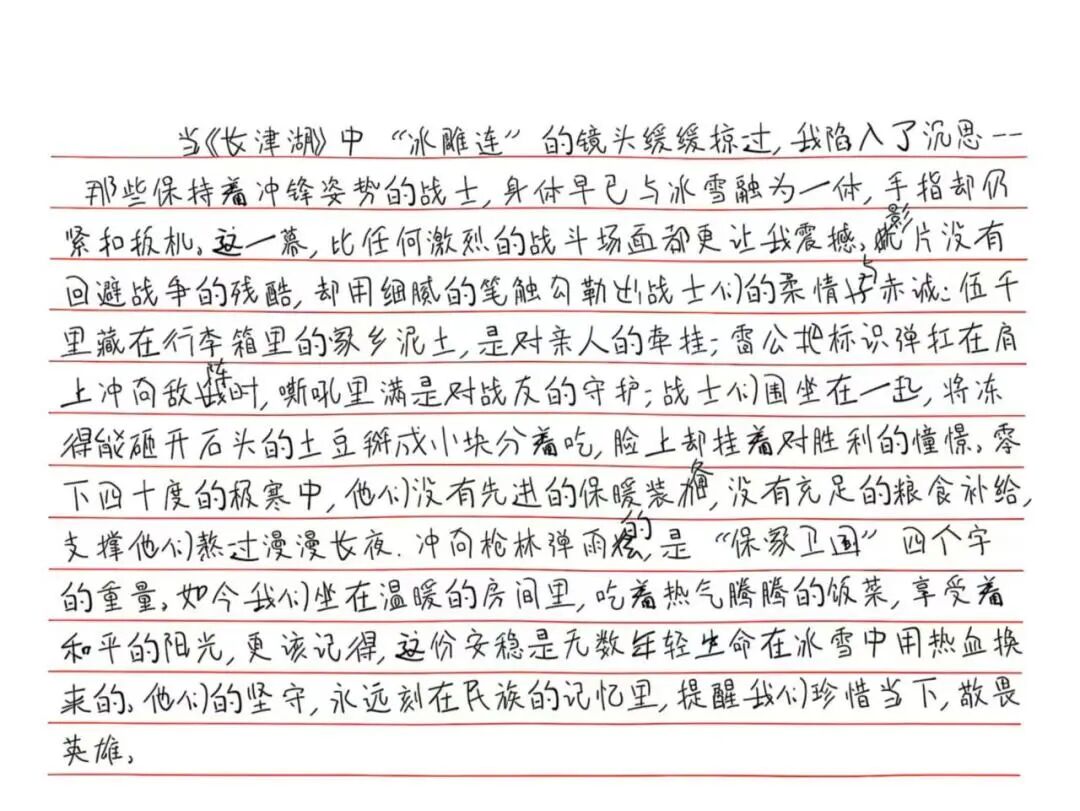 当《长津湖》中“冰雕连”的镜头缓缓掠过,我陷入了沉思--
那些保持着冲锋姿势的战士,身体早已与冰雪融为一体,手指却仍
紧扣扳机。这一幕,比任何激烈的战斗场面都更让我震撼。影片没有
回避战争的残酷,却用细腻的笔触勾勒出战士们的柔情与赤诚:伍千
里藏在行李箱里的家乡泥土,是对亲人的牵挂;雷公把标识弹扛在肩
上冲向敌阵时,嘶吼里满是对战友的守护;战士们围坐在一起,将冻
得能砸开石头的土豆掰成小块分着吃,脸上却挂着对胜利的憧憬。零
下四十度的极寒中,他们没有先进的保暖装备,没有充足的粮食补给,
支撑他们熬过漫漫长夜.冲向枪林弹雨的,是“保家卫国”四个字
的重量。如今我们坐在温暖的房间里,吃着热气腾腾的饭菜,享受着
和平的阳光,更该记得,这份安稳是无数年轻生命在冰雪中用热血换
来的。他们的坚守,永远刻在民族的记忆里,提醒我们珍惜当下,敬畏
英雄。